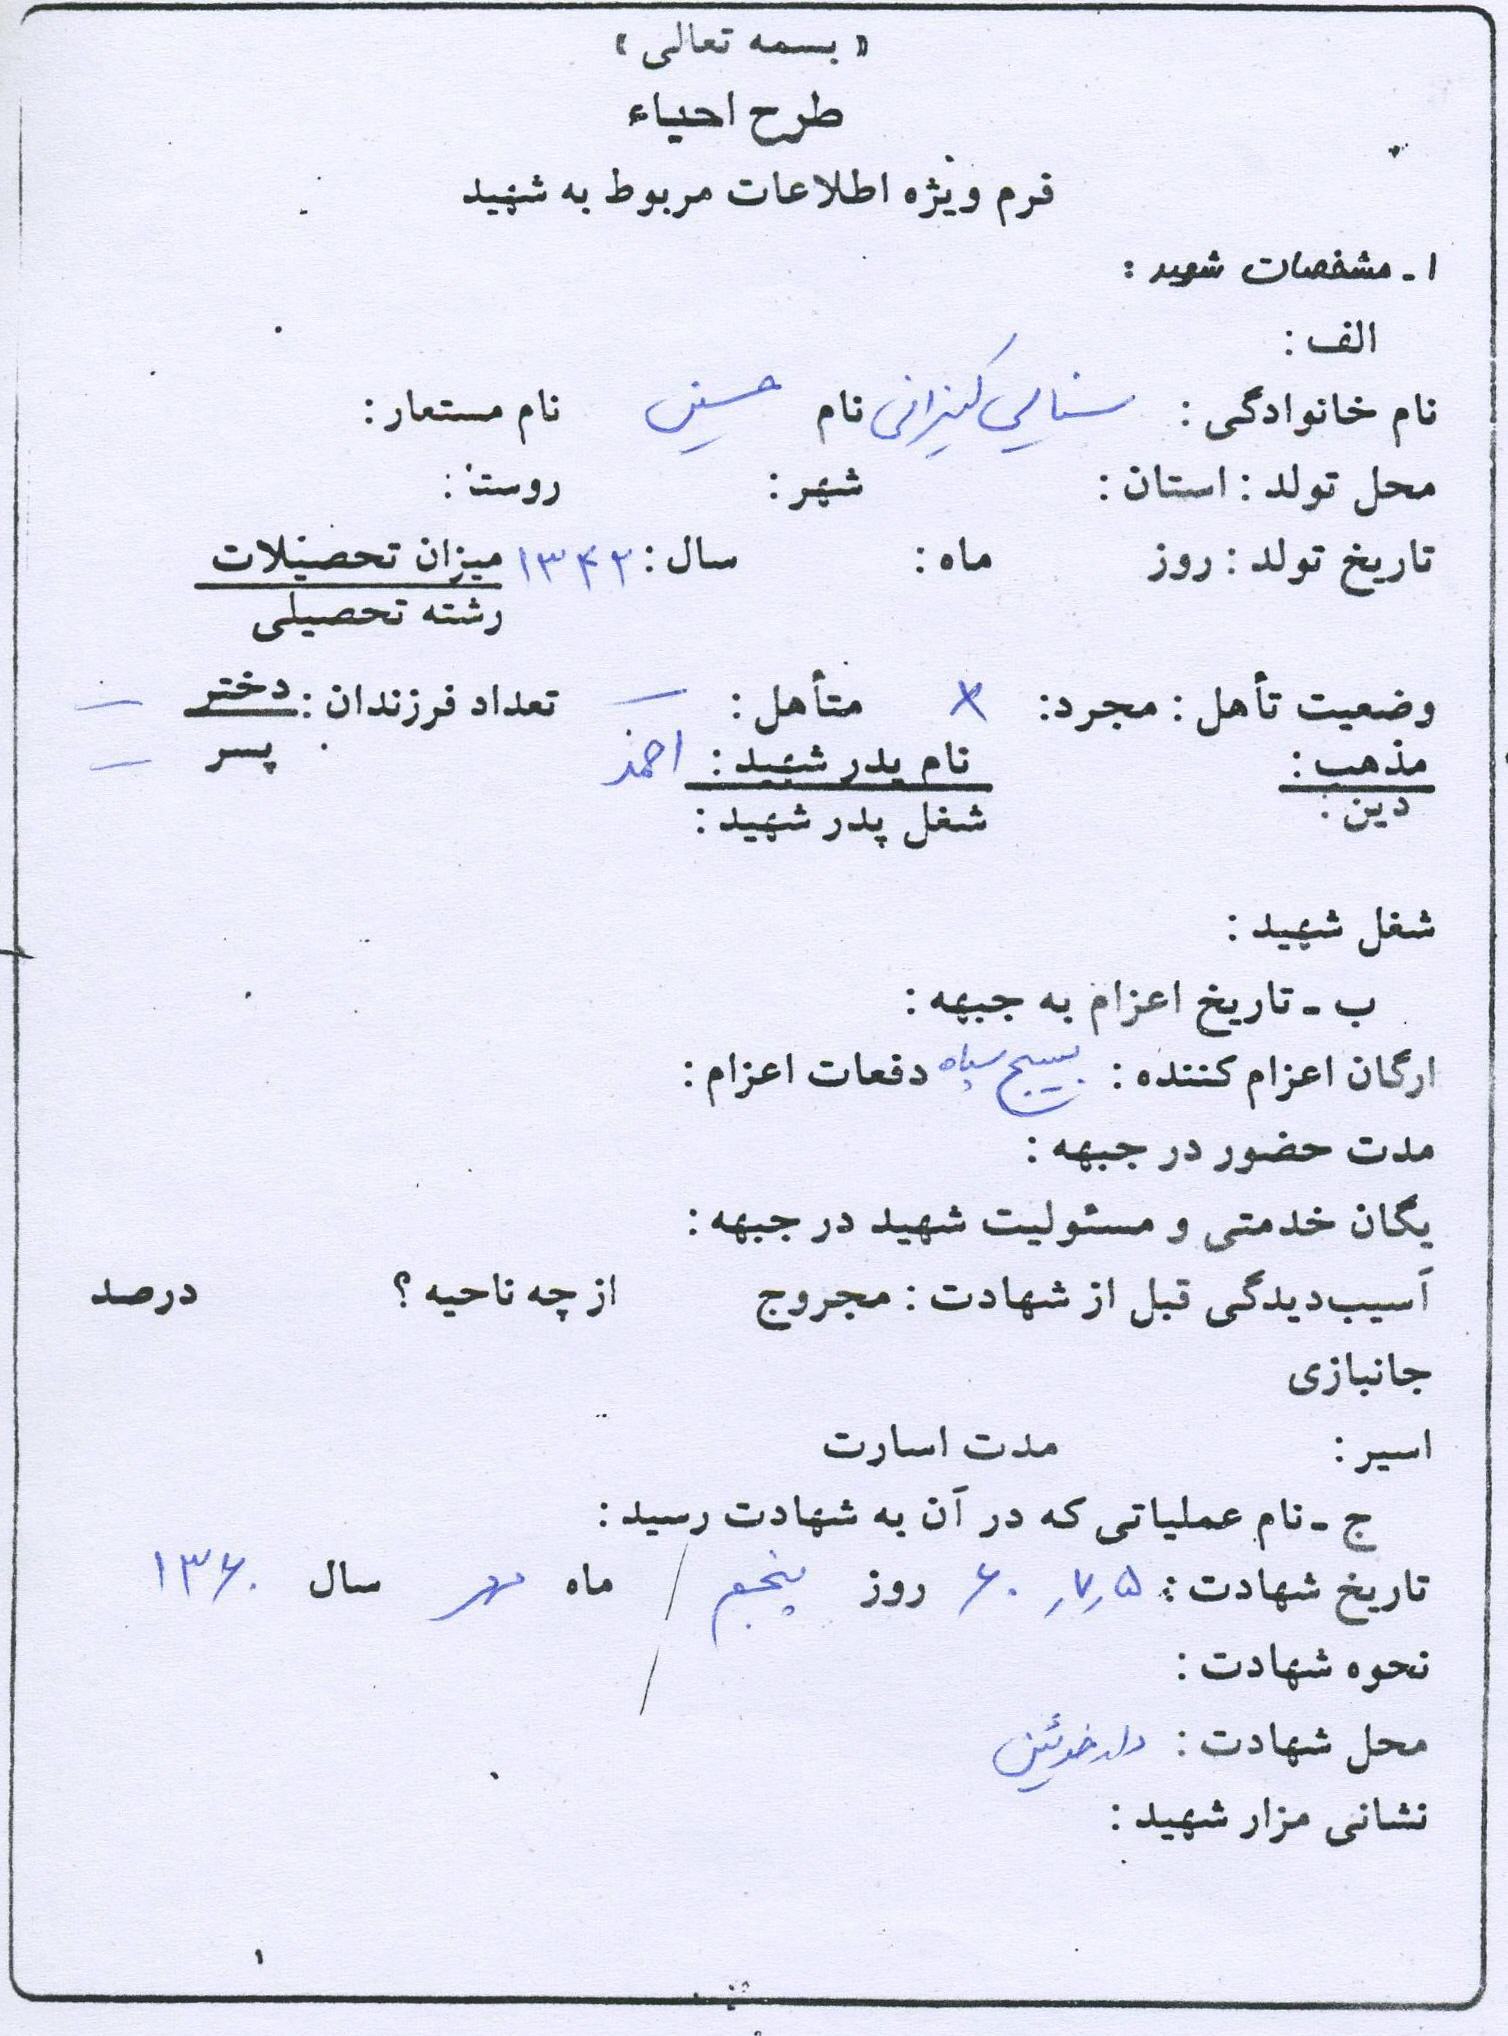 « بسمه تعالی »
طرح احیاء
فرم ویژه اطلاعات مربوط به شهید
۱ ـ مشخصات شهید :
الف :
نام خانوادگی : سنایی کنیزانی نام حسین نام مستعار :
محل تولد : استان : شهر : روستا :
تاریخ تولد : روز ماه : سال : ۱۳۴۲ میزان تحصیلات
رشته تحصیلی
وضعیت تأهل : مجرد : × متأهل : — تعداد فرزندان : دختر —
مذهب : نام پدر شهید : احمد پسر —
دین : شغل پدر شهید :
شغل شهید :
ب ـ تاریخ اعزام به جبهه :
ارگان اعزام کننده : بسیج سپاه دفعات اعزام :
مدت حضور در جبهه :
یگان خدمتی و مسئولیت شهید در جبهه :
آسیب‌دیدگی قبل از شهادت : مجروح از چه ناحیه ؟ درصد
جانبازی
اسیر : مدت اسارت
ج ـ نام عملیاتی که در آن به شهادت رسید :
تاریخ شهادت : ۵ ر ۷ ر ۶۰ روز پنجم / ماه مهر سال ۱۳۶۰
نحوه شهادت :
محل شهادت : دارخوئین
نشانی مزار شهید :
۱